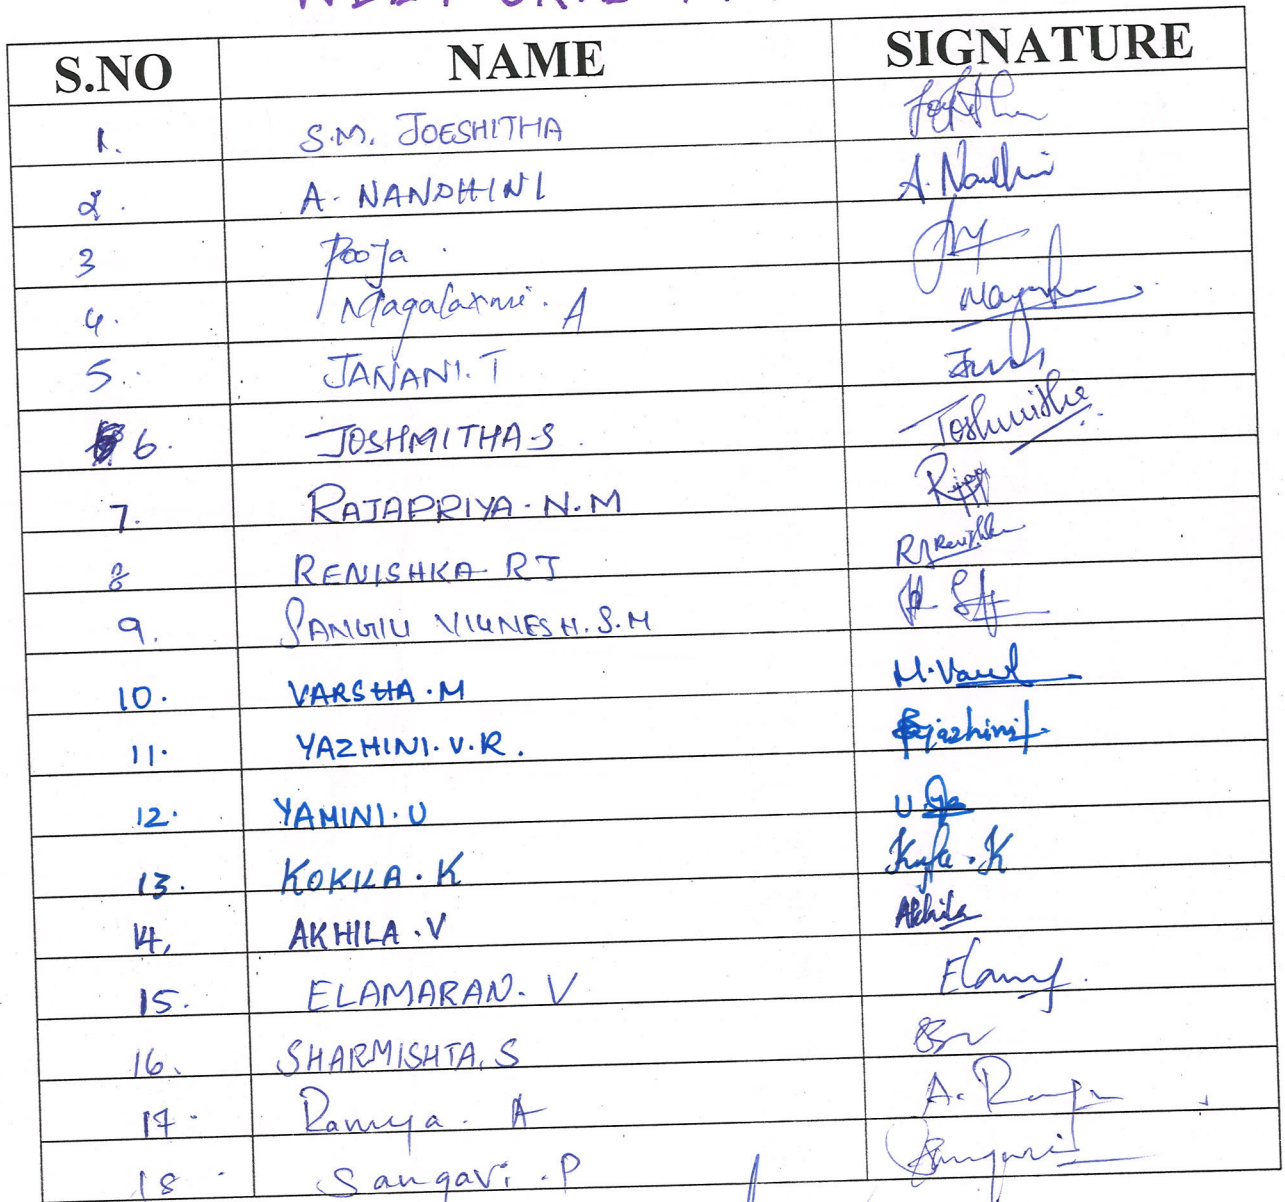 S.NO NAME SIGNATURE
1. S.M. JOESHITHA
2. A. NANDHINI A. Nandhini
3 Pooja
4. Nagalaxmi. A
5. JANANI. T
6. JOSHMITHA.S Joshmitha
7. RAJAPRIYA. N. M
8 RENISHKA RJ RJ Renishka
9. SANGILI VIGNESH. S. M
10. VARSHA. M M. Varsh
11. YAZHINI. V. R. Yazhini
12. YAMINI. U
13. KOKILA. K
14. AKHILA. V Akhila
15. ELAMARAN. V
16. SHARMISHTA. S
17. Ramya. A A. Ramya
18 Sangavi. P